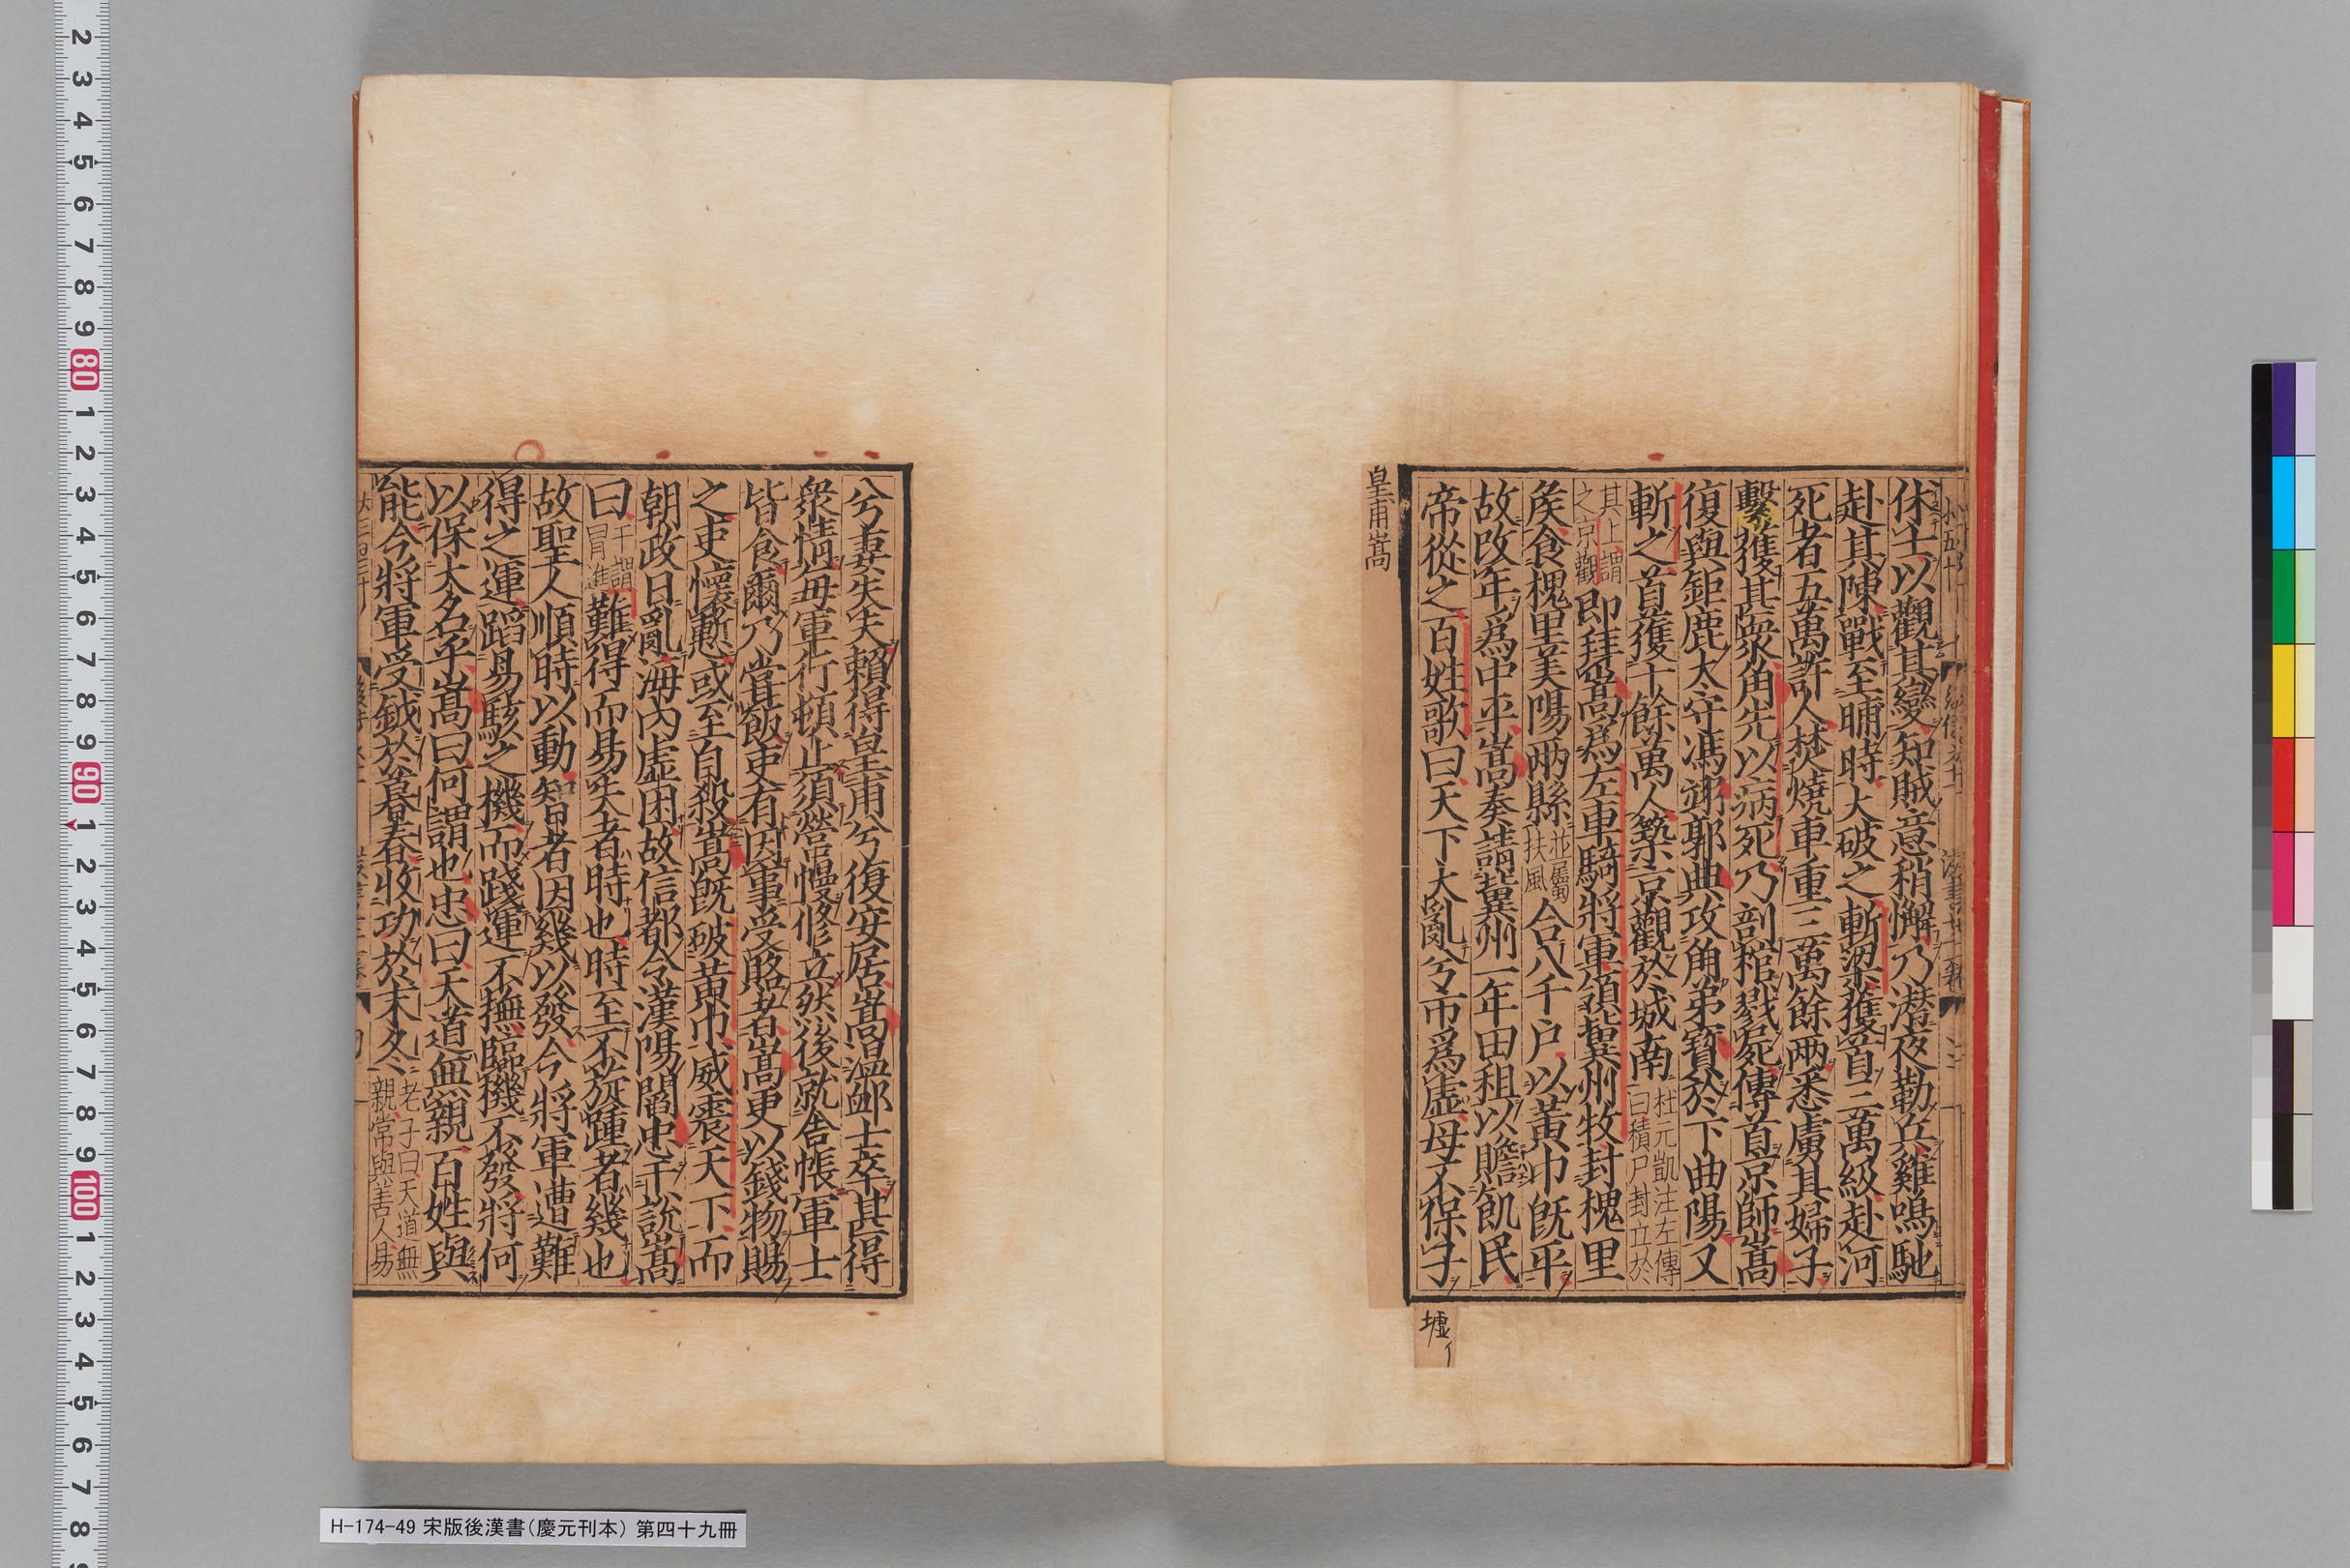 休士以觀其變知賊意稍懈乃潛夜勒兵雞鳴馳
赴其陳戰至晡時大破之斬梁獲首三萬級赴河
死者五萬許人焚燒車重三萬餘兩悉虜其婦子
繫獲其衆角先以病死乃剖棺戮屍傳首京師嵩
復與鉅鹿太守馮翊郭典攻角弟寶於下曲陽又
斬之首獲十餘萬人築京觀於城南杜元凱注左傳曰積尸封立於
其上謂之京觀即拜嵩爲左車騎將軍領冀州牧封槐里
侯食槐里美陽兩縣並屬扶風合八千户以黃巾旣平
故改年爲中平嵩奏請冀州一年田租以贍飢民
帝從之百姓歌曰天下大亂兮市爲虛母不保子
皇甫嵩
墟
兮妻失夫賴得皇甫兮復安居嵩溫卹士卒甚得
衆情毎軍行頓止須營幔修立然後就舍帳軍士
皆食爾乃甞飯吏有因事受賂者嵩更以錢物賜
之吏懷慙或至自殺嵩旣破黃巾威震天下而
朝政日亂海內虛困故信都令漢陽閻忠干說嵩
曰干謂冒進難得而易失者時也時至不旋踵者幾也
故聖人順時以動智者因幾以發今將軍遭難
得之運蹈易駭之機而踐運不撫臨機不發將何
以保大名乎嵩曰何謂也忠曰天道無親百姓與
能今將軍受鉞於暮春收功於末冬老子曰天道無親常與善人易
H-174-49 宋版後漢書(慶元刊本) 第四十九冊